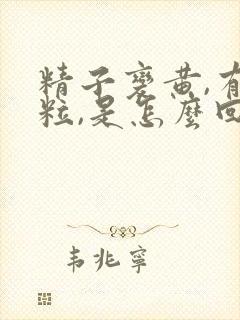 精子变黄,有
粒,是怎麼回
韦兆寧